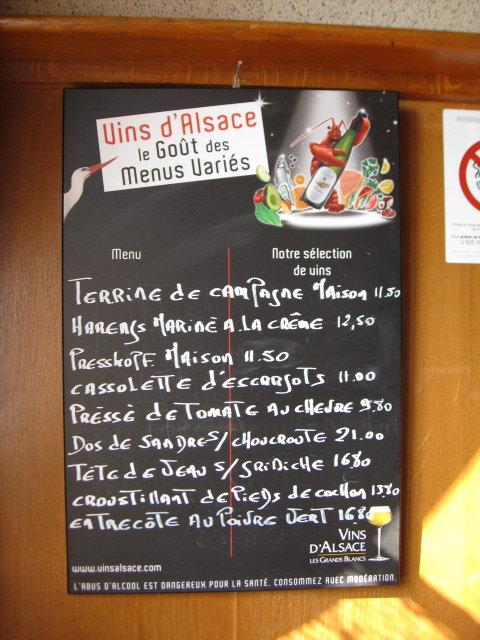 Vins d'Alsace
le Goût des
Menus Variés
Menu
Notre sélection
de vins
TERRINE DE CAMPAGNE MAISON 11.50
HARENGS MARINÈ A LA CRÊME 12,50
PRESSKOPF MAISON 11.50
CASSOLETTE d'ESCARGOTS 11.00
PRESSÈ DE TOMATE AU CHEVRE 9.80
DOS DE SANDRES/CHOUCROUTE 21.00
TÊTE DE VEAU S/GRIBICHE 16.80
CROUSTILLANT DE PIEDS DE COCHON 13.80
ENTRECÔTE AU POIVRE VERT 16.80
VINS
D'ALSACE
LES GRANDS BLANCS
www.vinsalsace.com
L'ABUS D'ALCOOL EST DANGEREUX POUR LA SANTÉ, CONSOMMEZ AVEC MODÉRATION.